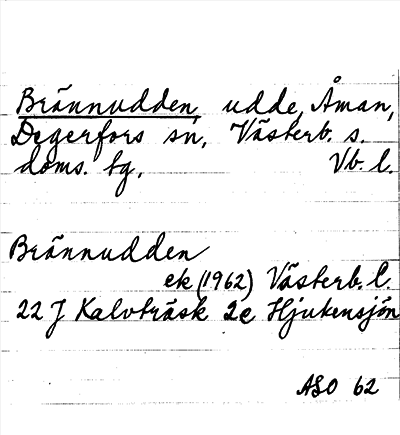 Brännudden, udde, Åman,
Degerfors sn, Västerb. s.
doms. tg, Vb. l.
Brännudden
ek (1962) Västerb. l.
22 J Kalvträsk 2e Hjukensjön
ASO 62